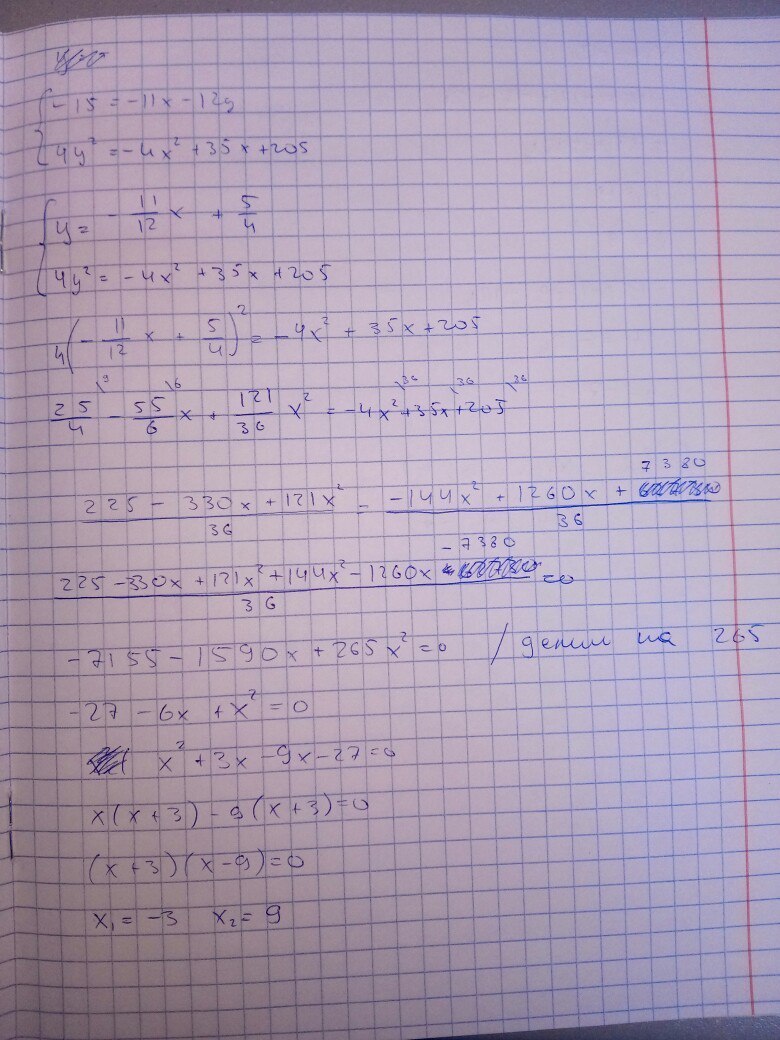 -15 = -11x - 12y
4y² = -4x² + 35x + 205
y = -11/12 x + 5/4
4y² = -4x² + 35x + 205
4(-11/12 x + 5/4)² = -4x² + 35x + 205
25/4 \9 - 55/6 \6 x + 121/36 x² = -4x² \36 + 35x \36 + 205 \36
(225 - 330x + 121x²)/36 = (-144x² + 1260x + 7380)/36
(225 - 330x + 121x² + 144x² - 1260x - 7380)/36 = 0
-7155 - 1590x + 265x² = 0 / делим на 265
-27 - 6x + x² = 0
x² + 3x - 9x - 27 = 0
x(x + 3) - 9(x + 3) = 0
(x + 3)(x - 9) = 0
x₁ = -3 x₂ = 9